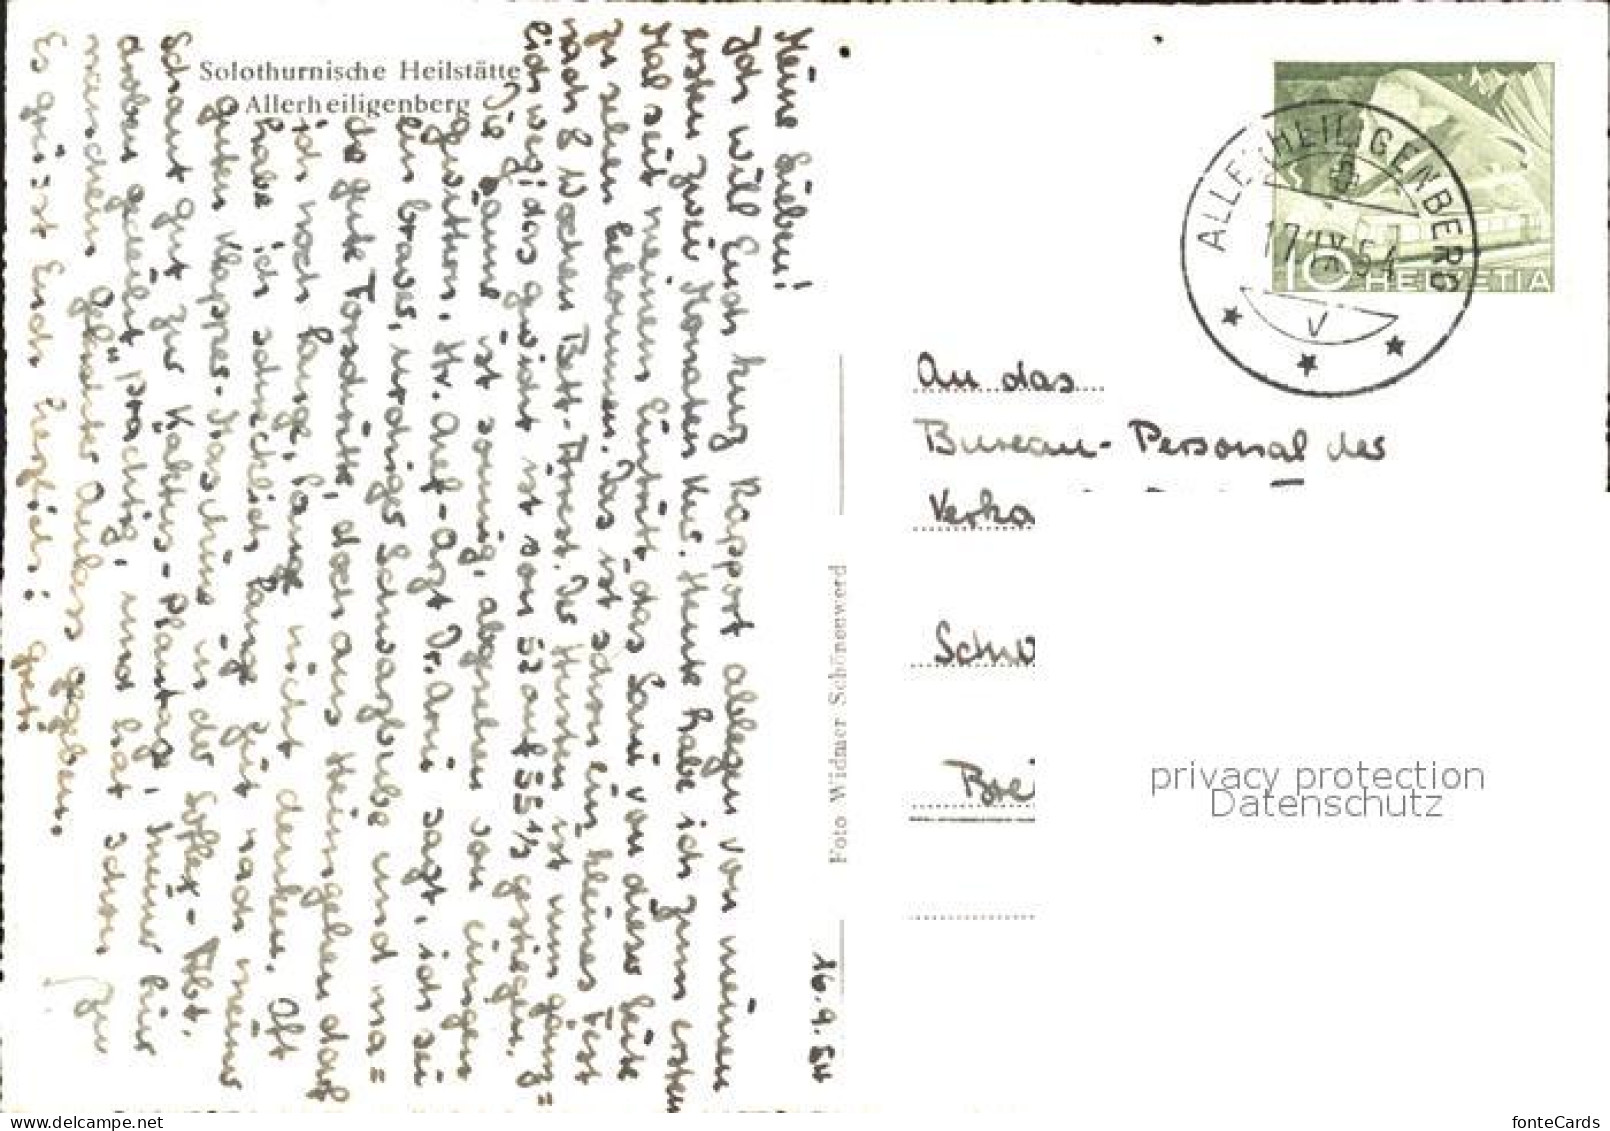 Solothurnische Heilstätte
Allerheiligenberg
16.9.54
Meine Lieben!
Ich will Euch kurz Rapport ablegen von meinen
ersten zwei Monaten Kur. Heute habe ich zum ersten
Mal seit meinem Eintritt das Sani von dieser Seite
zu sehen bekommen. Das ist schon ein kleines Fest
nach 8 Wochen Bett-Arrest. Der Husten ist nun gänz=
lich weg; das Gewicht ist von 52 auf 55 ½ gestiegen.
Die Laune ist sonnig, abgesehen von einigen
Gewittern. Hr. Chef-Arzt Dr. Arni sagt, ich sei
ein braves, urchiges Schwarzbube und ma=
che gute Fortschritte, doch ans Heimgehen darf
ich noch lange, lange nicht denken. Oft
habe ich schrecklich lange Zeit nach meiner
guten Klapper-Maschine in der Soflex-Abt.
Schaut gut zur Kaktus-Plantage, meiner hier
droben gedeiht prächtig, und hat schon zu
manchem Gelächter Anlass gegeben.
Es grüsst Euch herzlich: Greti
Foto Widmer Schönenwerd
ALLERHEILIGENBERG
17.IX.54
V
10 HELVETIA
An das
Bureau-Personal des
Verka
Schö
Brei
privacy protection
Datenschutz
fonteCards